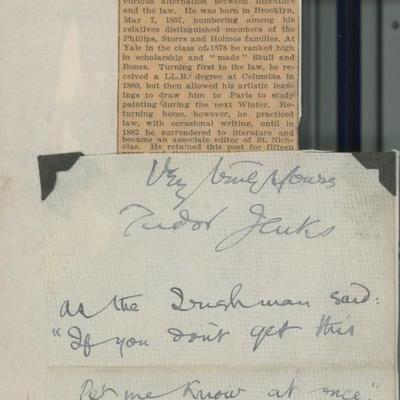 curious alternation between literature
and the law. He was born in Brooklyn,
May 7, 1857, numbering among his
relatives distinguished members of the
Phillips, Storrs and Holmes families. At
Yale in the class of 1878 he ranked high
in scholarship and "made" Skull and
Bones. Turning first to the law, he re-
ceived a LL.B. degree at Columbia in
1880, but then allowed his artistic lean-
ings to draw him to Paris to study
painting during the next Winter. Re-
turning home, however, he practiced
law, with occasional writing, until in
1882 he surrendered to literature and
became an associate editor of St. Nich-
olas. He retained this post for fifteen
Very truly Yours
Tudor Jenks
As the Irishman said:
"If you don't get this
let me know at once."